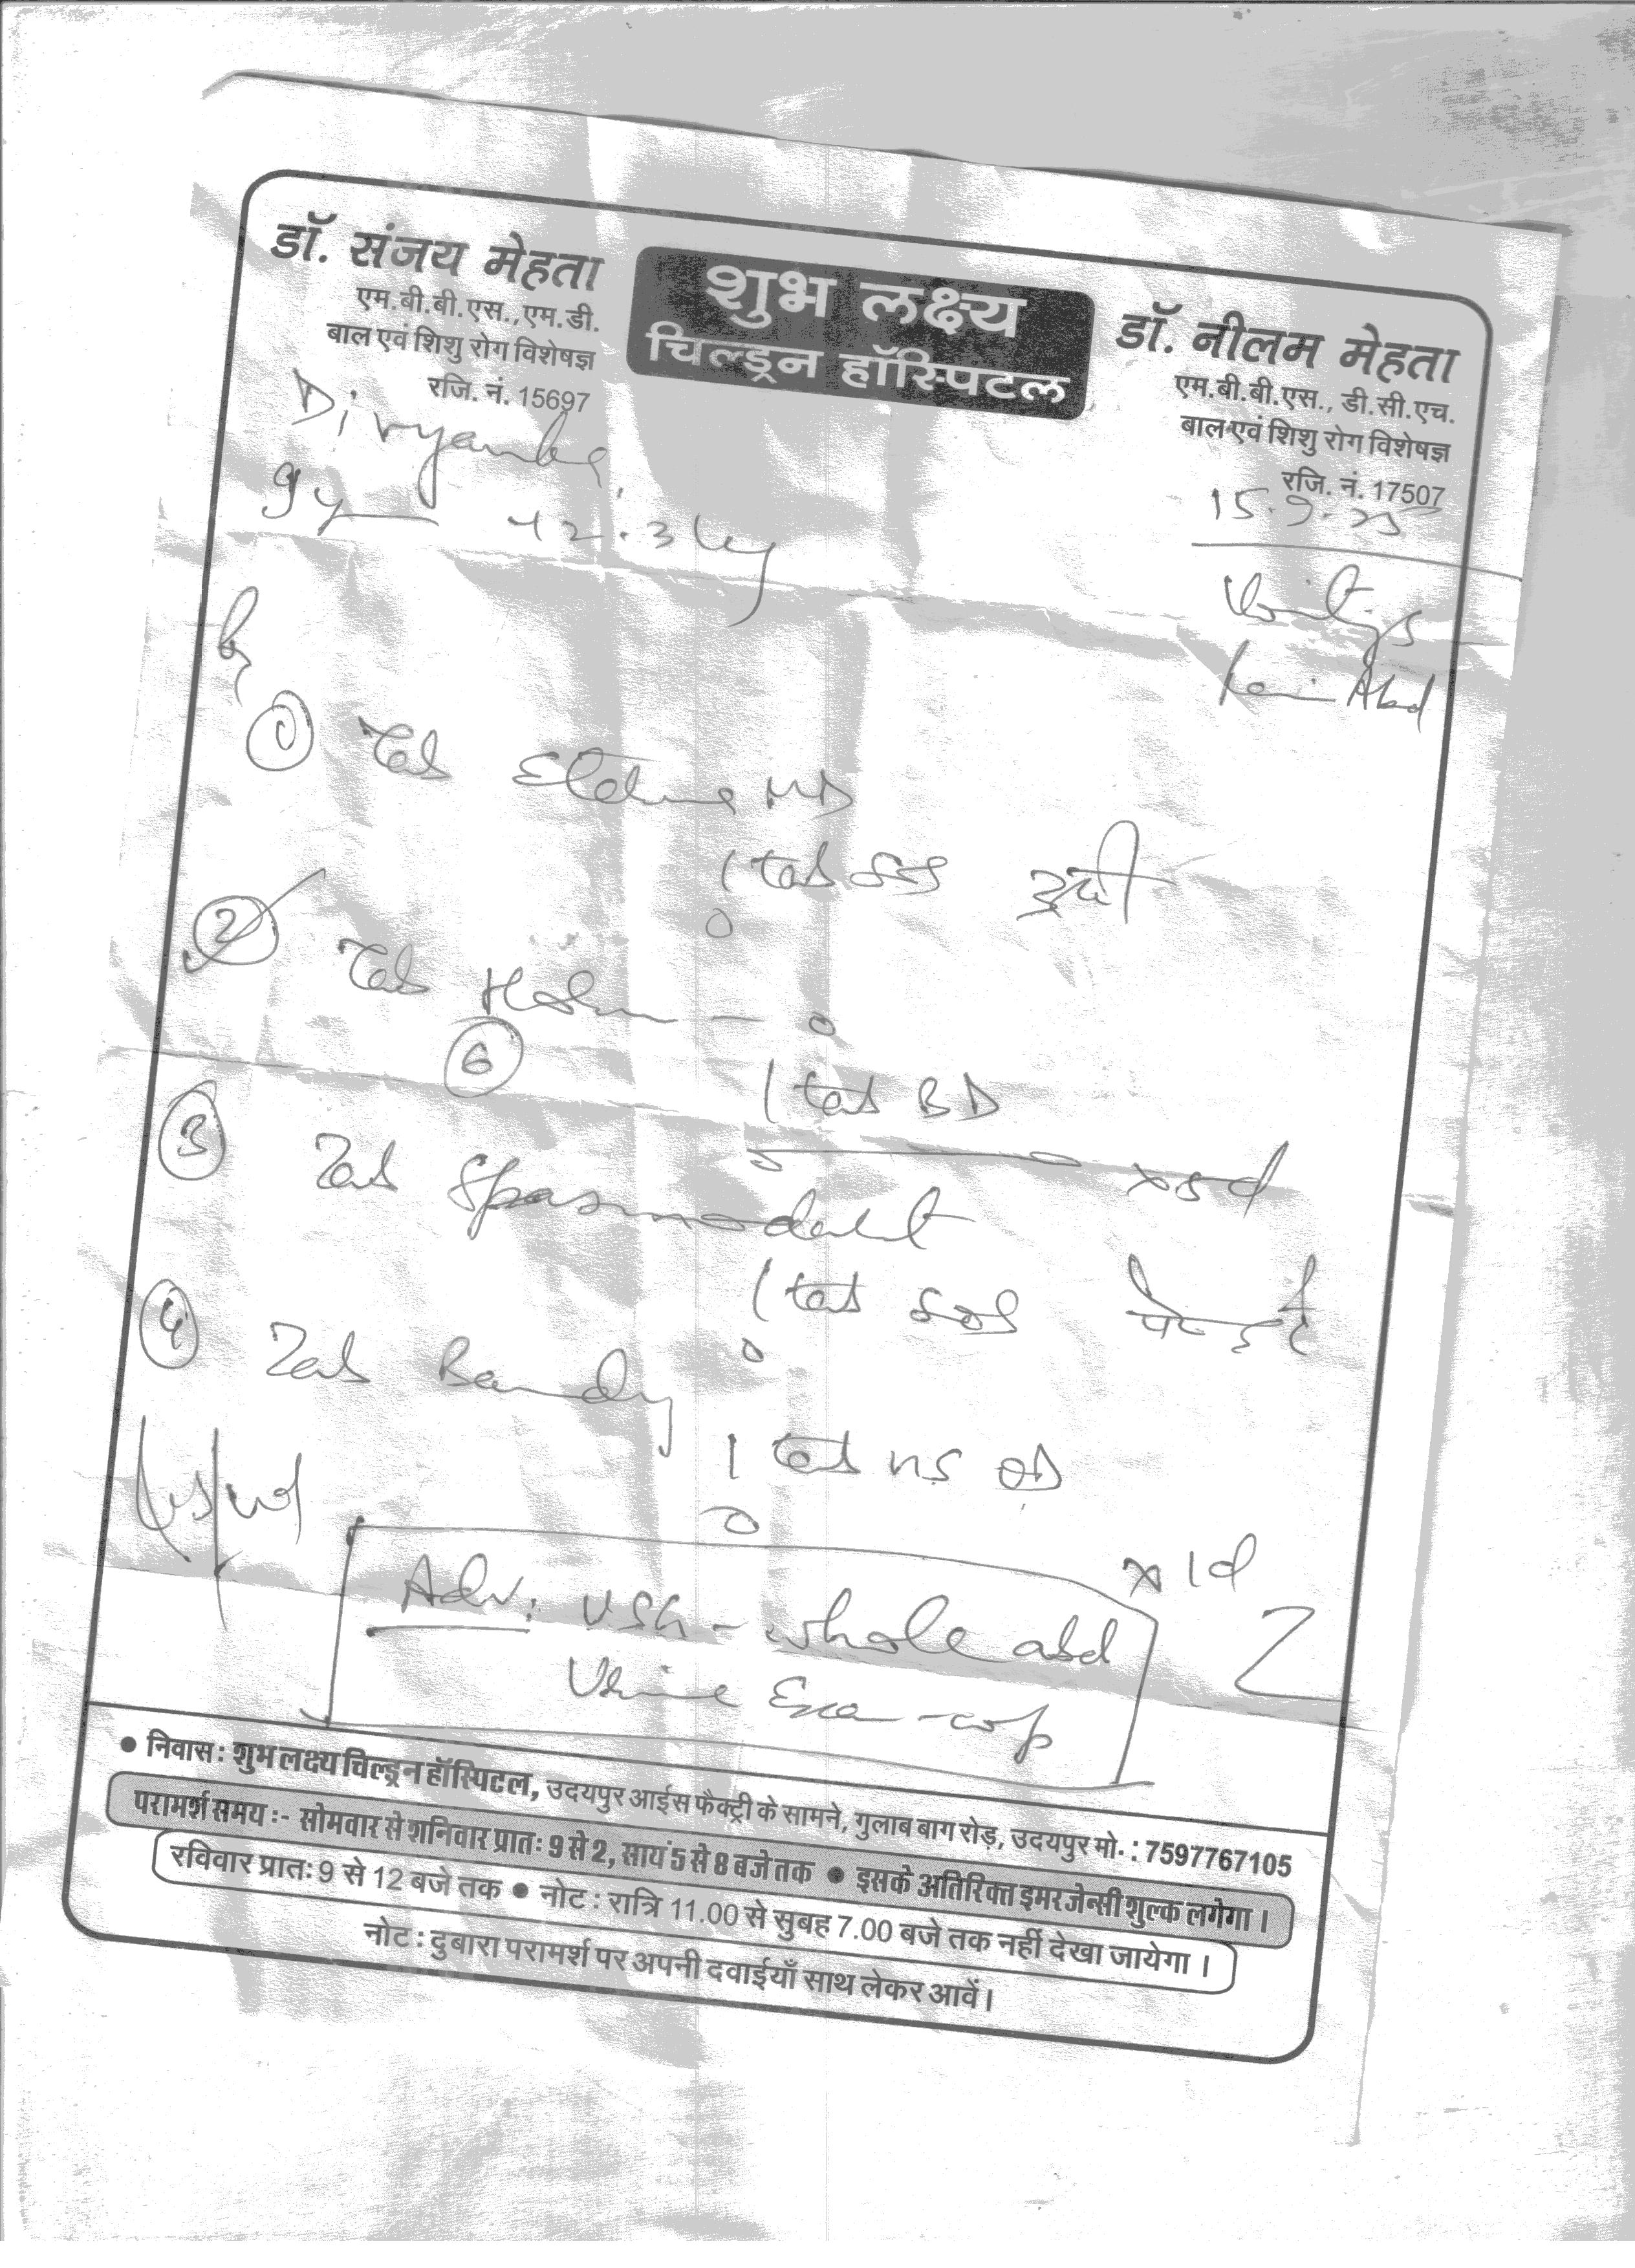 डॉ. संजय मेहता
एम.बी.बी.एस., एम.डी.
बाल एवं शिशु रोग विशेषज्ञ
रजि. नं. 15697
शुभ लक्ष्य
चिल्ड्रन हॉस्पिटल
डॉ. नीलम मेहता
एम.बी.बी.एस., डी.सी.एच.
बाल एवं शिशु रोग विशेषज्ञ
रजि. नं. 17507
9y 42.3 kg
Abd
① Tab MD
1 tab SOS
② Tab
⑥ 1 tab BD
x 5 d
③ Tab Spasmodart
1 tab SOS
④ Tab Bandy
1 tab HS OD
x 1 d
Adv: USG - whole abd
Urine
• निवास : शुभ लक्ष्य चिल्ड्रन हॉस्पिटल, उदयपुर आईस फैक्ट्री के सामने, गुलाब बाग रोड़, उदयपुर मो. : 7597767105
परामर्श समय :- सोमवार से शनिवार प्रातः 9 से 2, सायं 5 से 8 बजे तक • इसके अतिरिक्त इमरजेन्सी शुल्क लगेगा ।
रविवार प्रातः 9 से 12 बजे तक • नोट : रात्रि 11.00 से सुबह 7.00 बजे तक नहीं देखा जायेगा ।
नोट : दुबारा परामर्श पर अपनी दवाईयाँ साथ लेकर आवें ।